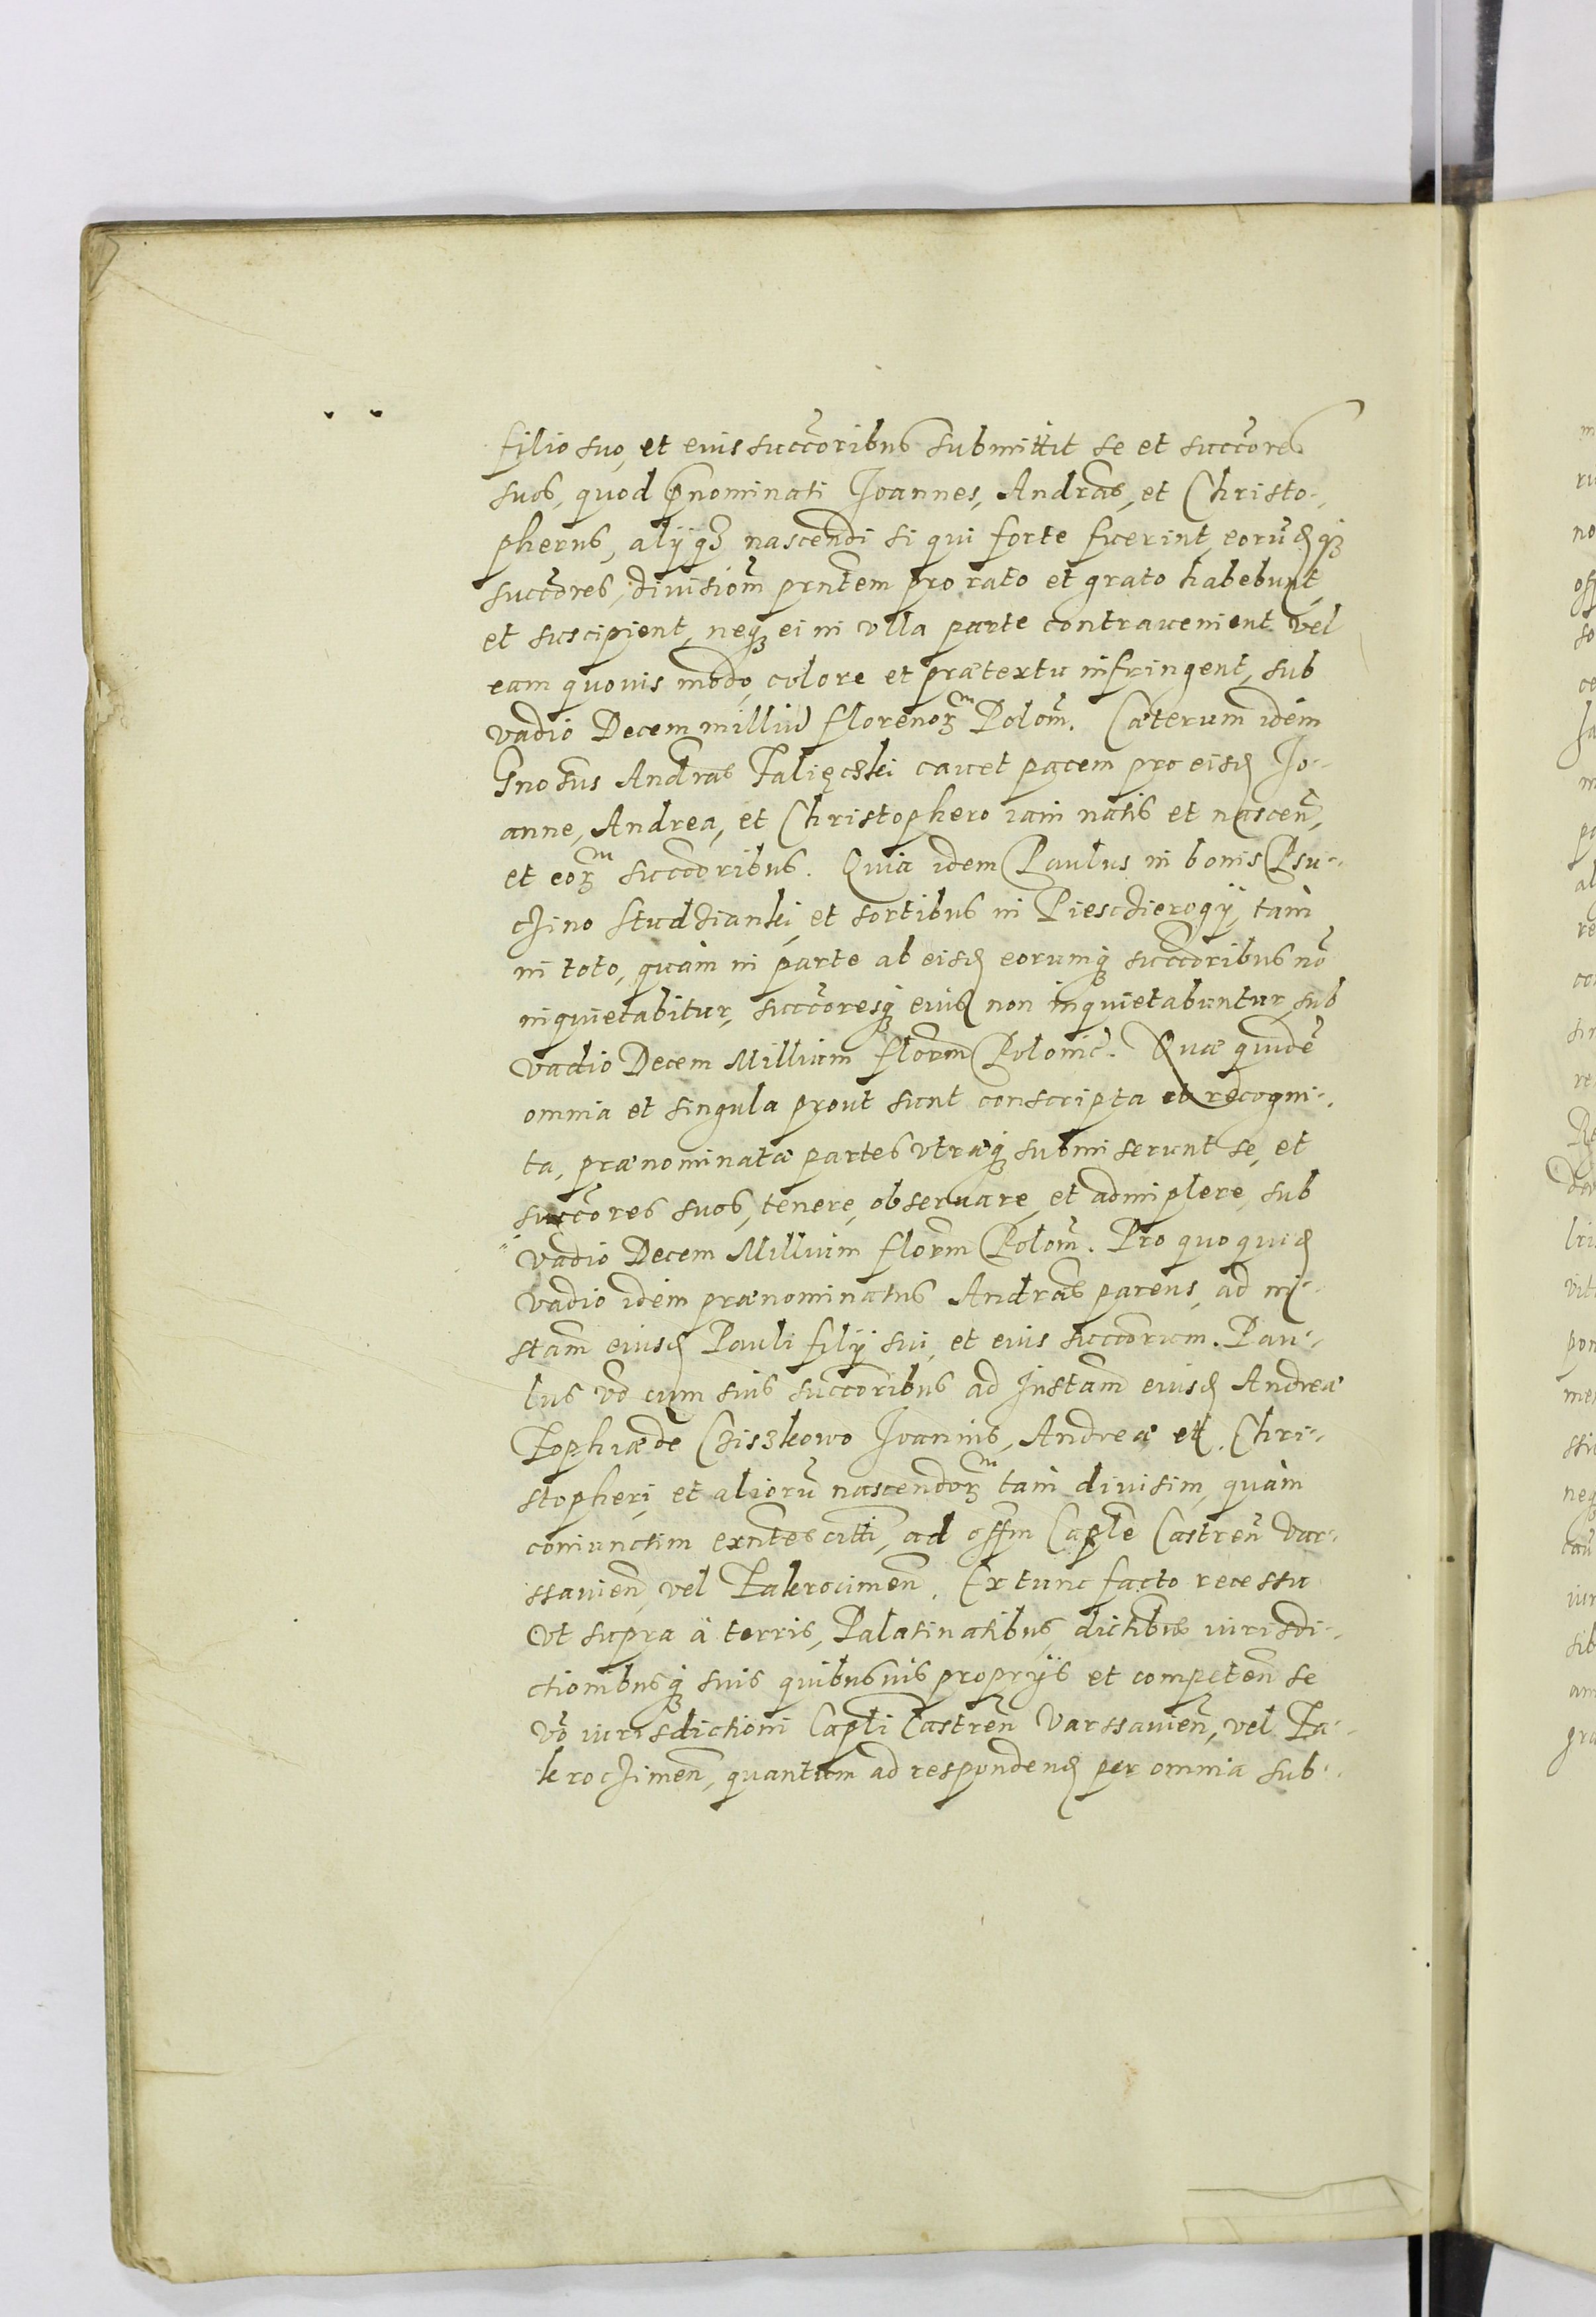 filio suo, et eius succ̄oribus submittit se et succ̄ores
suos, quod p̄nominati Joannes, Andreas, et Christo-
pherus, alÿqȝ nascendi si qui forte fuerint, eorūdqȝ
succ̄ores, divisiōm prn̄tem pro rato et grato habebunt,
et suscipient, neqȝ ei in vlla parte contrauenient vel
eam quovis modo, colore et prætextu infringent, sub
vadio Decem milliū florenorꝫ Polōm. Cæterum idem
Gn̄osus Andreas Falięczki cauet pacem pro eisd Jo-
anne, Andrea, et Christophero iam natis et nascen̄,
et eorꝫ succ̄oribus. Quia idem Paulus in bonis Psu-
czino Studzianki, et sortibus in Piesczierogÿ, tam
in toto, quàm in parte ab eisd eorumqȝ succ̄oribus nō
inquietabitur, succ̄oresqȝ eius non inquietabuntur, sub
vadio Decem Millium flor̄m Polonic̄. Quæ quidē
omnia et singula prout sunt conscripta et recogni-
ta, prænominatæ partes vtræqȝ submiserunt se, et
succ̄ores suos, tenere, obseruare, et adimplere, sub
vadio Decem Millium flor̄m Polōm. Pro quo quid
vadio idem prænominatus Andreas parens, ad in-
stam̄ eiusd Pauli filÿ sui, et eius succ̄orum. Pau-
lus v̄o cum suis succ̄oribus ad Instam̄ eiusd Andreæ
de Cziszkowo Joannis, Andreæ et Chri-
stopheri, et aliorū nascendorꝫ tam divisim, quàm
coniunctim exn̄tes citt̄i, ad off̄m Cap̄le Castren̄ Var-
ssauien̄, vel Zakrocimen̄. Ex tunc facto recessu
Vt supra à terris, Palatinatibus, dictibus iurisdi-
ctionibusqȝ suis quibusuis proprÿs et competen̄ se
v̄o iurisdictioni Capl̄i Castren̄ Varssauien̄, vel Za-
kroczimen̄, quantum ad respondend per omnia sub-